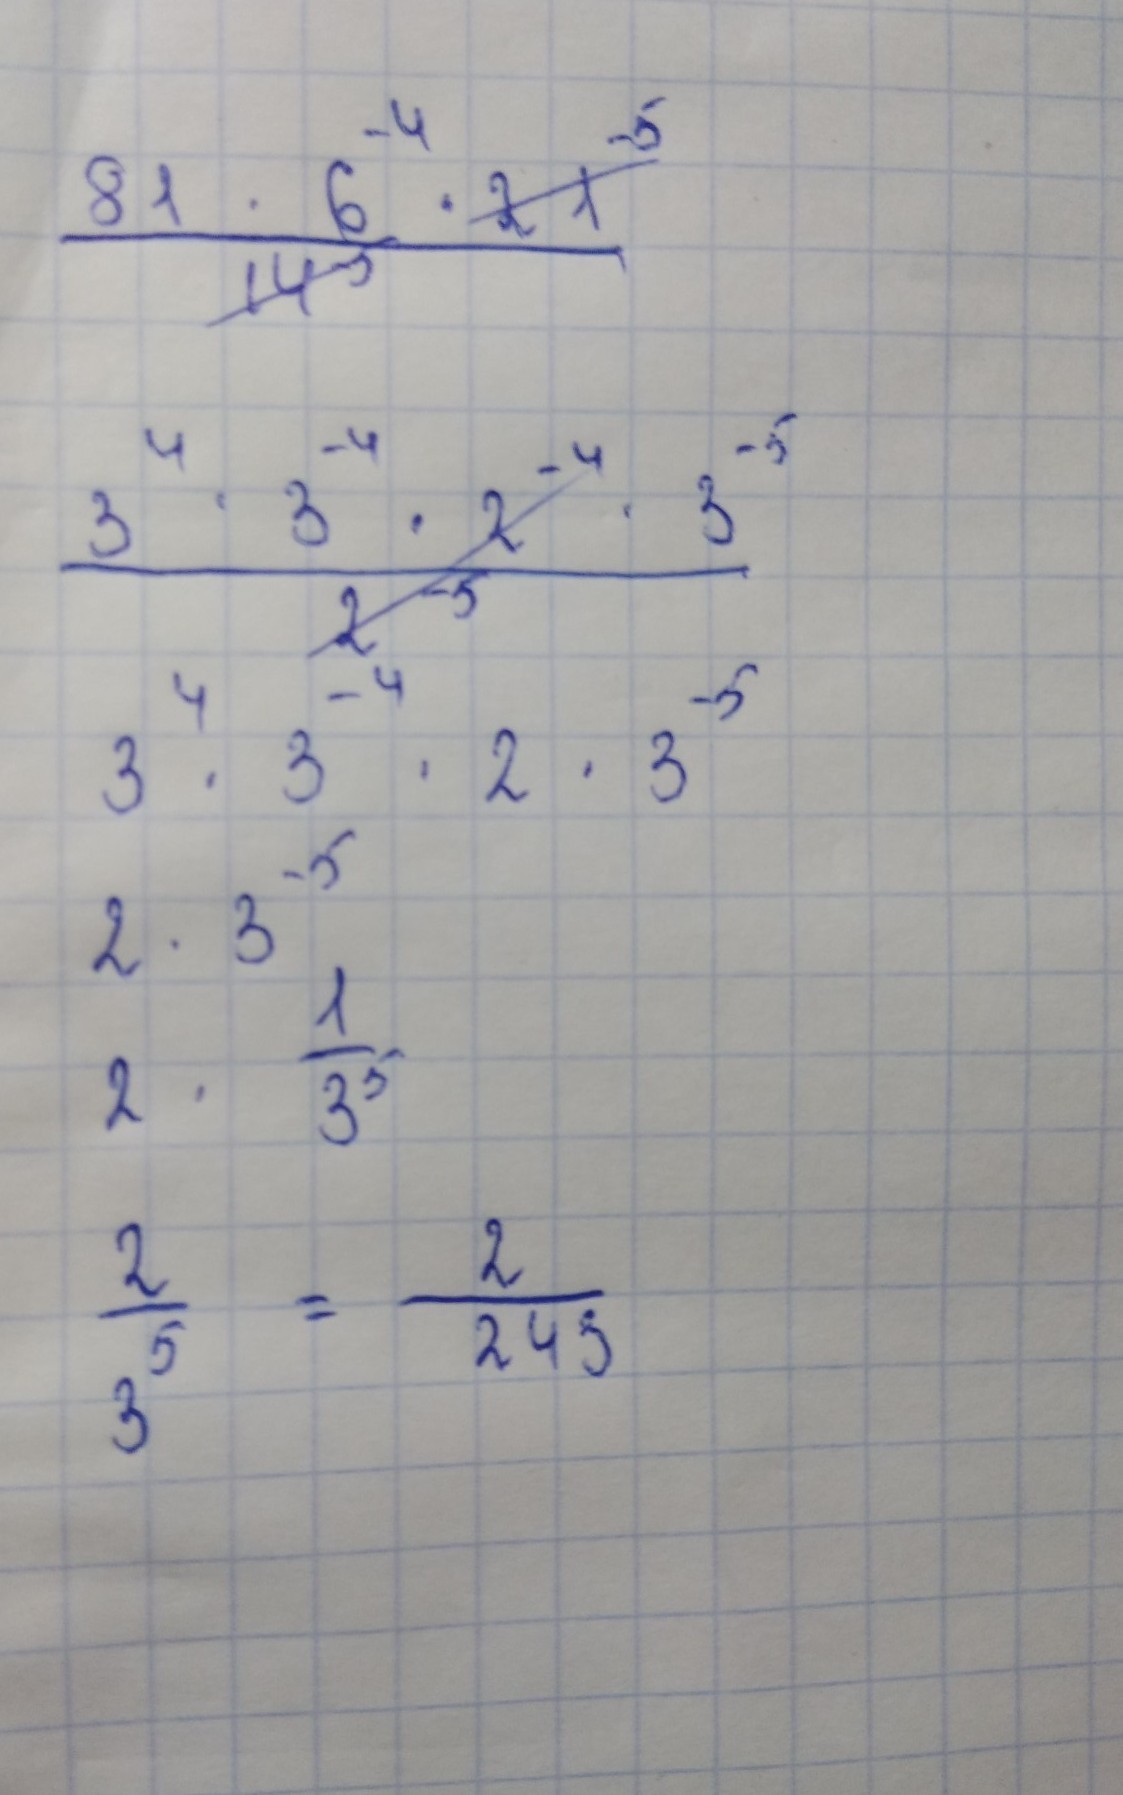 81 · 6⁻⁴ · 21⁻⁵
14⁻⁵
3⁴ · 3⁻⁴ · 2⁻⁴ · 3⁻⁵
2⁻⁵
3⁴ · 3⁻⁴ · 2 · 3⁻⁵
2 · 3⁻⁵
2 · 1/3⁵
2/3⁵ = 2/243